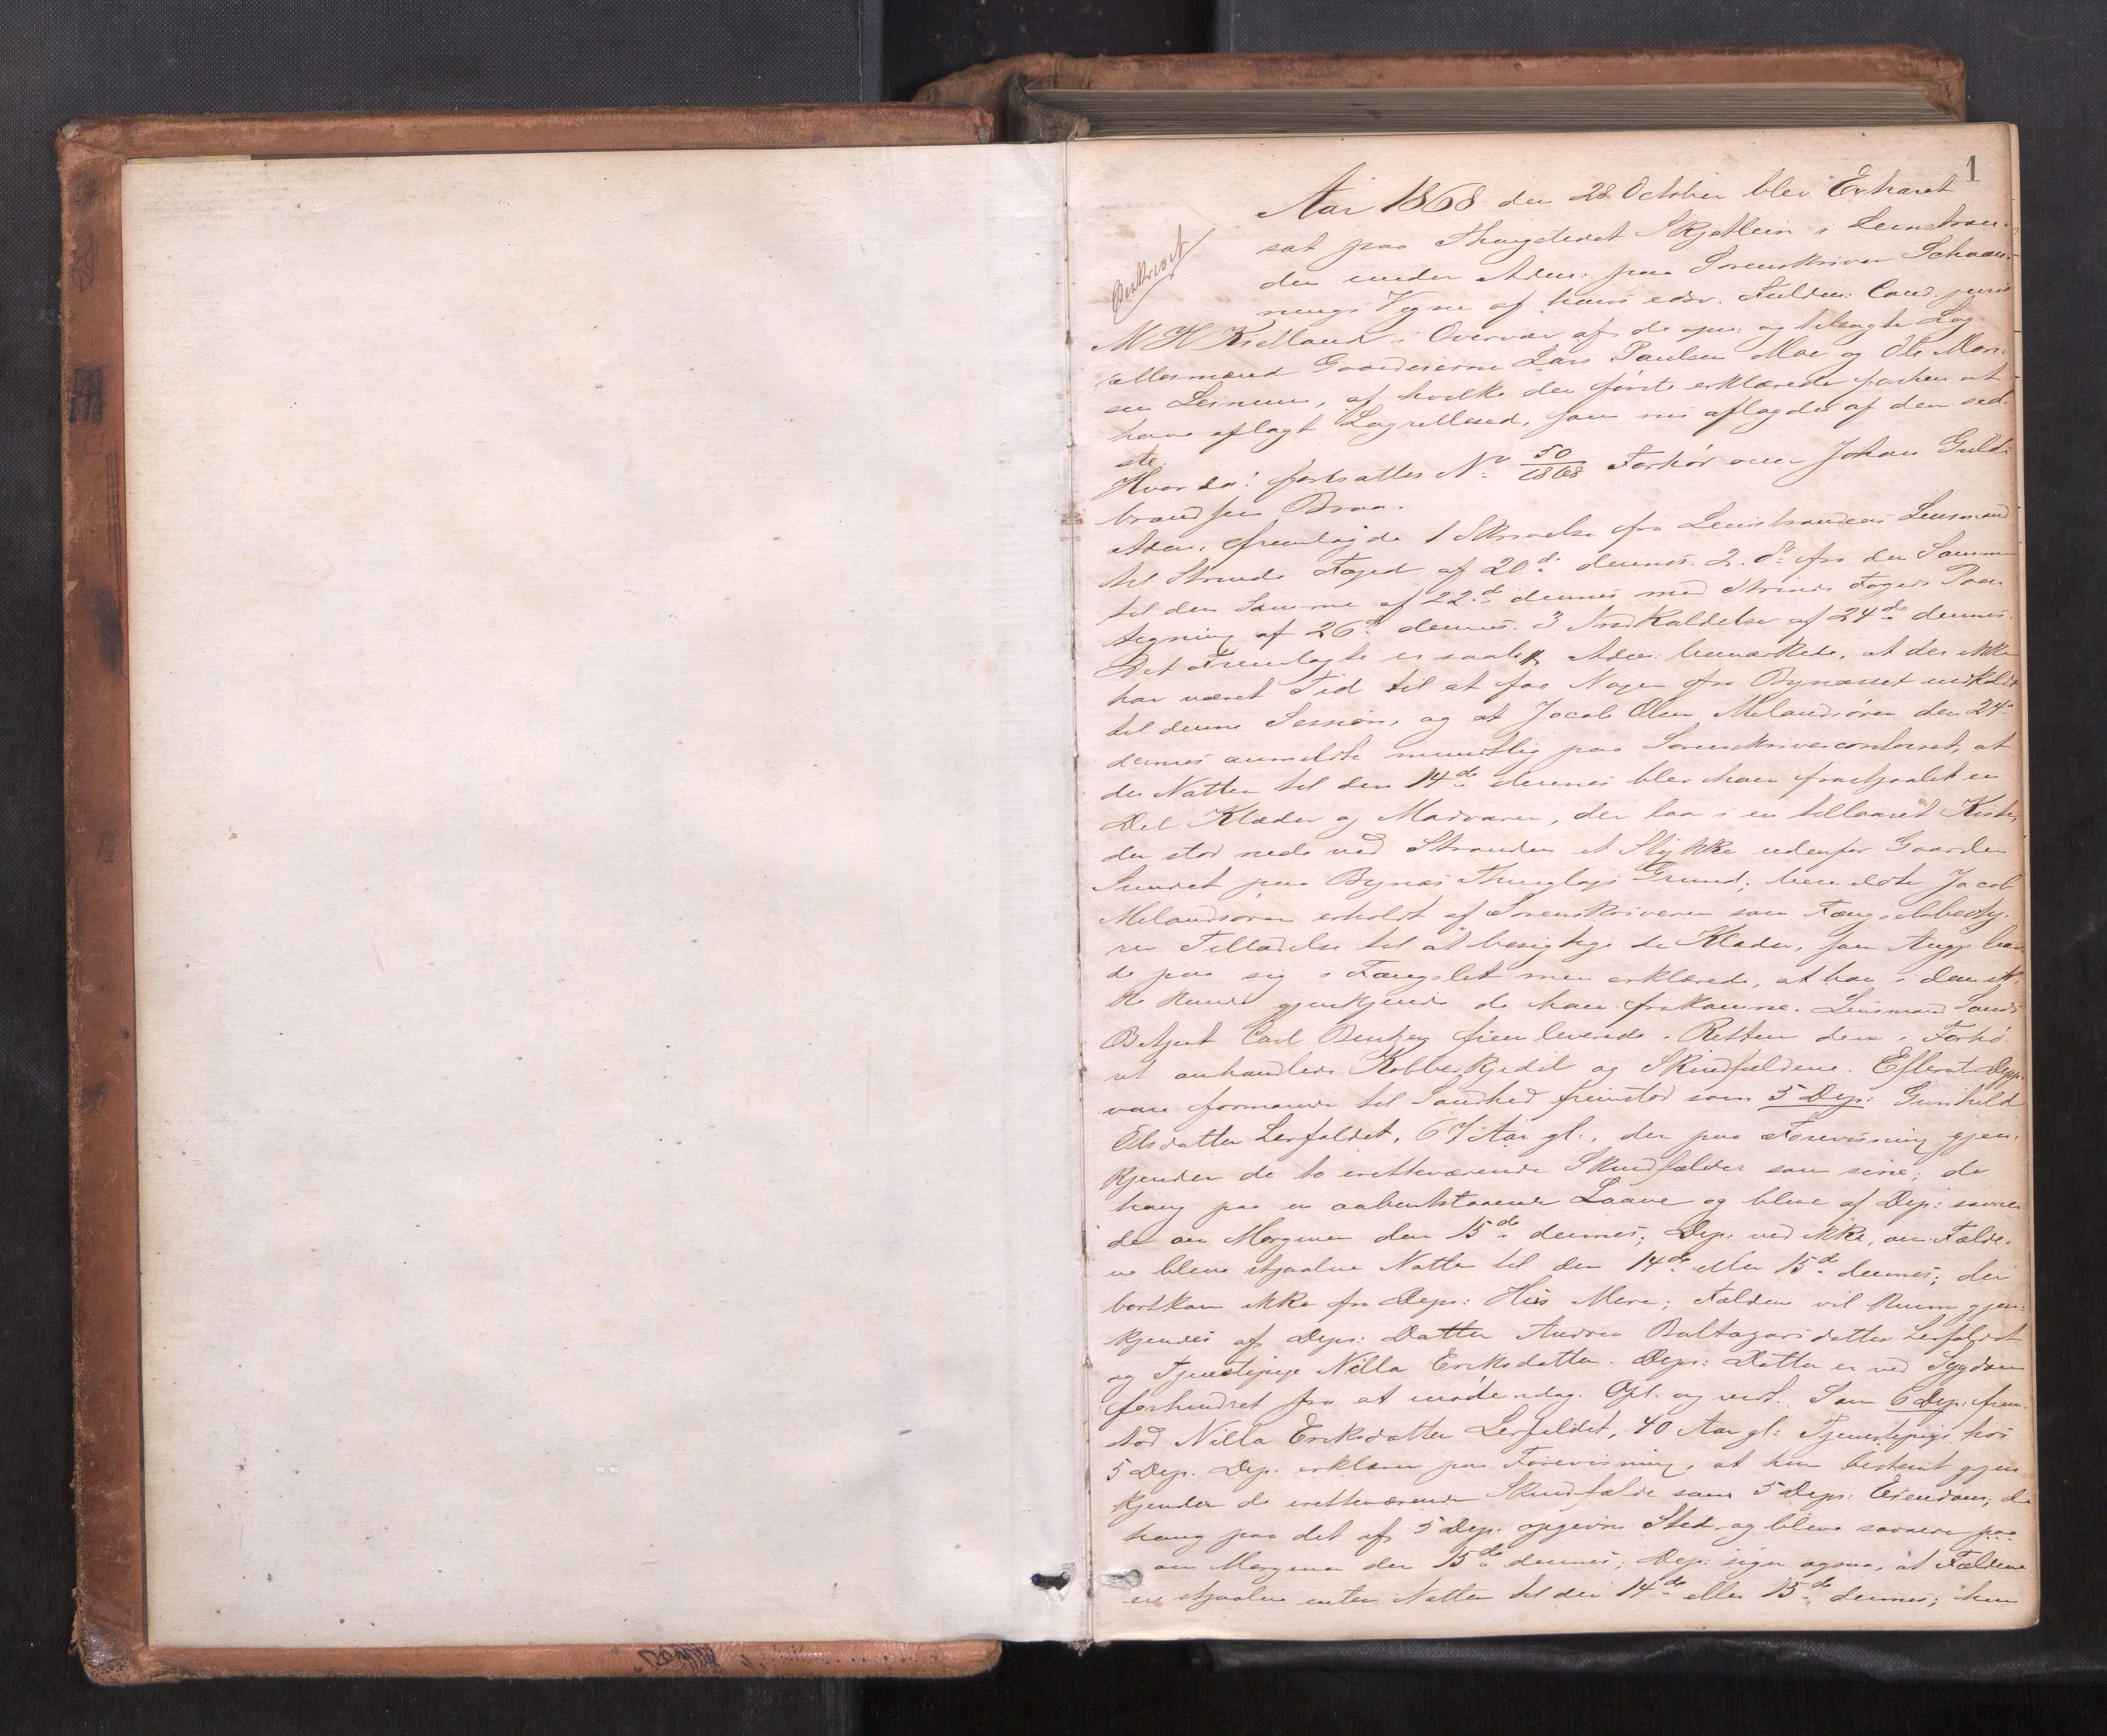 1
Aar 1868 den 28 October blev Extraret
sat paa Thingstedet Skjetlein i Leinstran-
den under Adm: paa Sorenskriver Schaan-
nings Vegne af hans edsv. Fuldm: Cand. juris
Beskrevet
M H Kielland i Overvær af de opn: og tilsagte Lag-
rettesmænd Gaardeierne Lars Paulsen Moe og Ole Mon-
sen Leinum, af hvilke den første erklærede forhen at
have aflagt Lagrettesed, som nu aflagdes af den sid-
ste.
Hvorda: fortsattes No 50/1868 Forhør over Johan Guld-
brandsen Braa.
Adm: fremlagde 1 Skrivelse fra Leinstrandens Lensmand
til Strinde Foged af 20de dennes. 2. do fra den Samme
til den Samme af 22de dennes med Strinde Fogeds Paa-
tegning af 26de dennes. 3 Indkaldelse af 24de dennes.
Det Fremlagte er saal: Adm: bemærkede, at der ikke
har været Tid til at faa Nogen fra Bynæsset indkaldt
til denne Session, og at Jacob Olsen Melandsøren den 24de
dennes anmeldte mundtlig paa Sorenskrivercontoret, at
der Natten til den 14de dennes blev ham frastjaalet en
Del Klæder og Madvarer, der laa i en tillaaset Kiste,
der stod nede ved Stranden et Stykke udenfor Gaarden
Sundet paa Bynæs Thinglags Grund; bemeldte Jacob
Melandsøren erholdt af Sorenskriveren som Fængselsbesty-
rer Tilladelse til at besigtige de Klæder, som Angj. hav-
de paa sig i Fængslet men erklærede, at han i dem ik-
ke kunde gjenkjende de ham frakomne. Lensmand Sands
Betjent Carl Bentzen fremleverede i Retten den i Forhø-
ret omhandlede Kobberkjedel og Skindfeldene. Efterat Depp:
vare formanede til Sandhed fremstod som 5 Dep: Gunhild
Elsdatter Lerfaldet, 67 Aar gl., der paa Forevisning gjen-
kjender de to iretteværende Skindfælder som sine; de
hang paa en aabentstaaende Laave og bleve af Dep: savne-
de om Morgenen den 15de dennes; Dep. ved ikke, om Fælde-
ne bleve stjaalne Natten til den 14de eller 15de dennes; der
bortkom ikke fra Deps: Hus Mere; Fælden vil kunne gjen-
kjendes af Deps: Datter Andrea Baltazarsdatter Lerfaldet
og Tjenestepige Nilla Eriksdatter. Deps: Datter er ved Sygdom
forhindret fra at møde idag. Opl. og vedt. Som 6 Dep: frem-
stod Nilla Eriksdatter Lerfaldet, 40 Aar gl: Tjenestepige hos
5 Dep. Dep. erklærer paa Forevisning, at hun bestemt gjen-
kjender de iretteværende Skindfælde som 5 Deps: Eiendom; de
hang paa det af 5 Dep. opgivne Sted og bleve savnede paa
om Morgenen den 15de dennes; Dep: siger ogsaa, at Fældene
ere stjaalne enten Natten til den 14de eller 15de dennes; hun